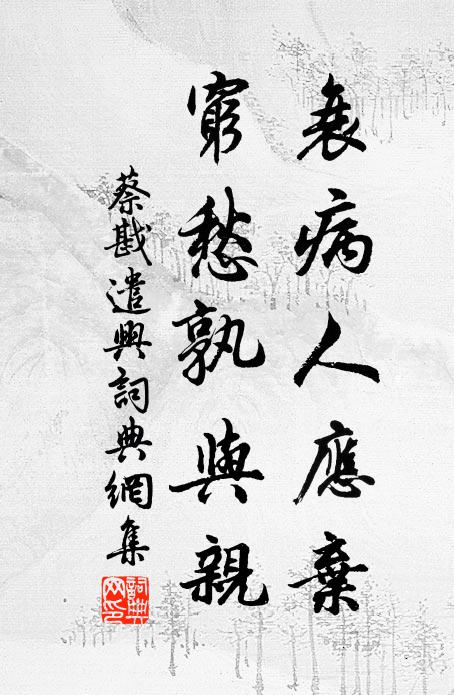 衰病人應棄
窮愁孰與親
蔡戡遣興詞典網集
詞典網印